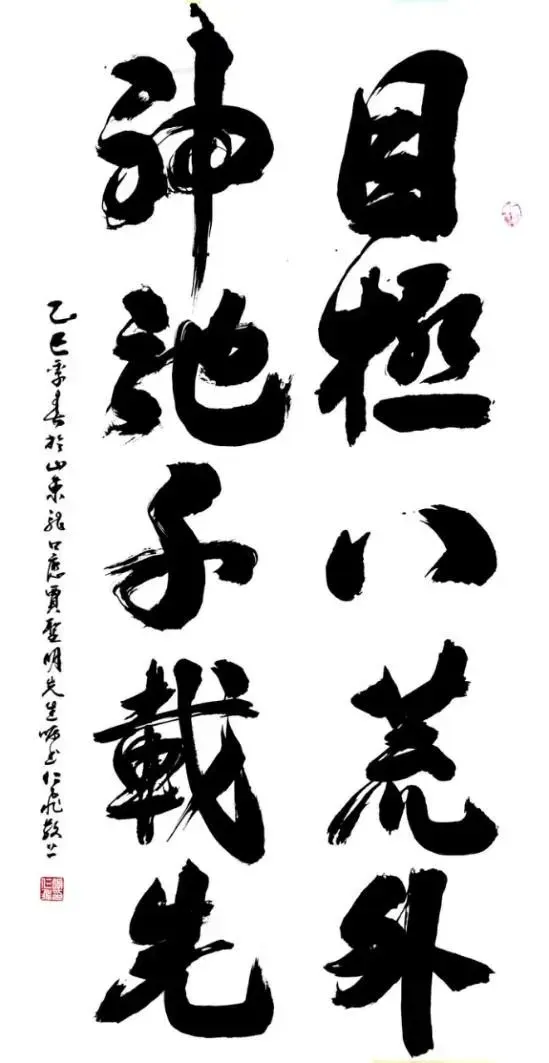 目極八荒外
神馳千載先
乙巳季春於山東龍口應賈明先生囑书仁飛敬上